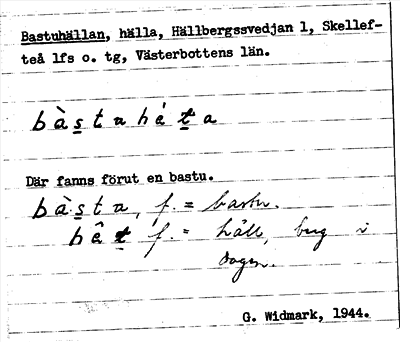 Bastuhällan, hälla, Hällbergssvedjan 1, Skellef-
teå lfs o. tg, Västerbottens län.
bàstahéta
Där fanns förut en bastu.
bàsta, f. = bastu.
hêt f. = häll, i
G. Widmark, 1944.